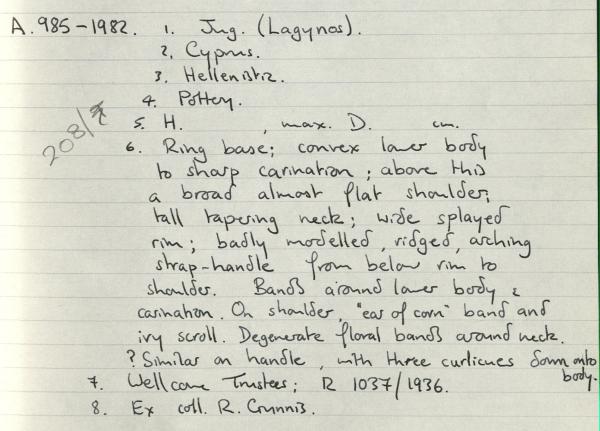 A.985-1982. 1. Jug. (Lagynos).
2. Cyprus.
3. Hellenistic.
4. Pottery.
5. H. , max. D. cm.
208/
6. Ring base; convex lower body
to sharp carination; above this
a broad almost flat shoulder;
tall tapering neck; wide splayed
rim; badly modelled, ridged, arching
strap-handle from below rim to
shoulder. Bands around lower body &
carination. On shoulder, "ear of corn" band and
ivy scroll. Degenerate floral bands around neck.
? Similar on handle, with three curlicues down onto
body.
7. Wellcome Trustees; R 1037/1936.
8. Ex coll. R. Gunnis.